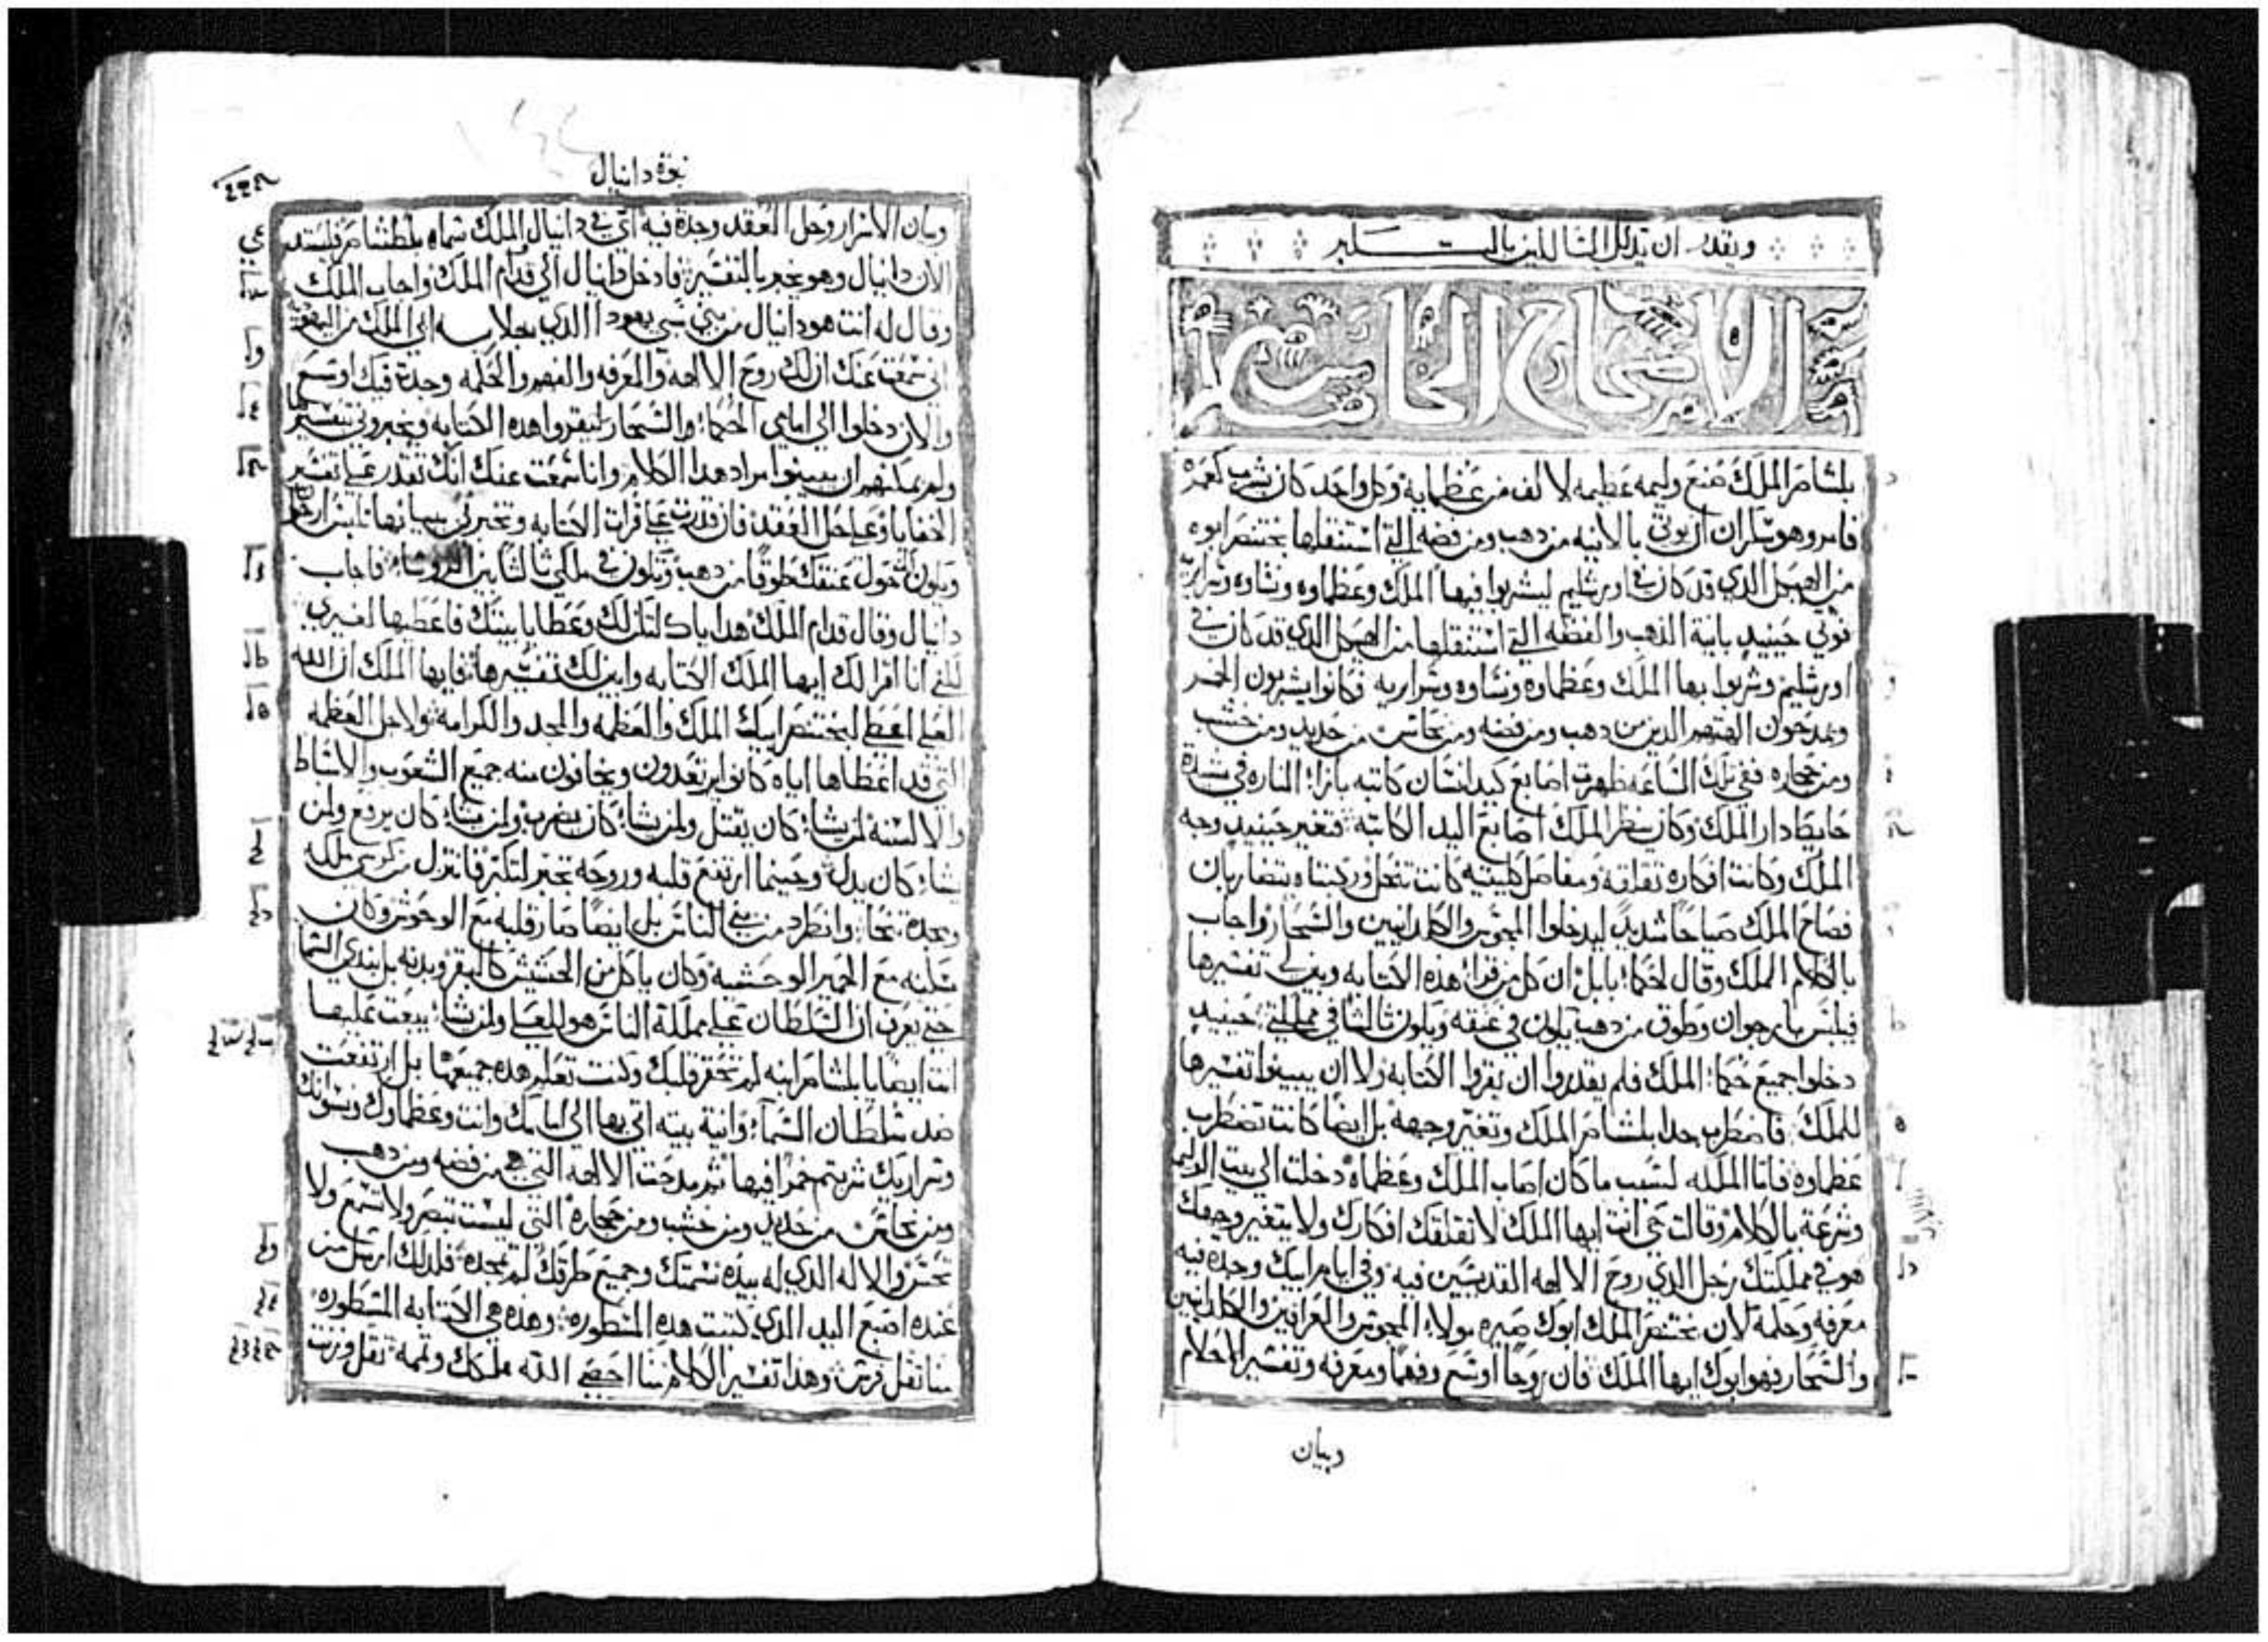 ويقدر ان يذلل السالكين بالتكبر
الاصحاح الخامس
بلشاصر الملك صنع وليمه عظيمه لالف من عظمايه وكل واحد كان يشرب كعمره
فامر وهو سكران ان يوتي بالانيه من دهب ومن فضه التي استنقلها بختنصر ابوه
من الهيكل الدي قد كان في اورشليم ليشربوا فيها الملك وعظماوه ونساوه وسراريه
فوتي حينيد بانية الذهب والفضه التي استنقلها من الهيكل الدي قد كان في
اورشليم وشربوا بها الملك وعظماوه ونساوه وسراريه فكانوا يشربون الخمر
ويمدحون الهتهم الدين من دهب ومن فضه ومن نحاس من حديد ومن خشب
ومن حجاره ففي تلك الساعه ظهرت اصابع كيد انسان كاتبه بازاء المناره في شيدة
حايط دار الملك وكان ينظر الملك اصابع اليد الكاتبه فتغير حينيد وجه
الملك وكانت افكاره تقلقه ومفاصل كليتيه كانت تنحل وركبتاه يتضاربان
فصاح الملك صياحا شديدا ليدخلوا المجوس والكلدانيين والسحار واجاب
بالكلام الملك وقال لحكماء بابل ان كل من قراء هذه الكتابه ويبن لي تفسيرها
فيلبس بارجوان وطوق من دهب يكون في عنقه ويكون ثالثا في مملكتي حينيد
دخلوا جميع حكماء الملك فلم يقدروا ان يقروا الكتابه ولا ان يبينوا تفسيرها
للملك فاضطرب جدا بلشاصر الملك وتغير وجهه بل ايضا كانت تضطرب
عظماوه فاما الملكه لسبب ما كان اصاب الملك وعظماه دخلت الي بيت الوليمه
وشرعة بالكلام وقالت حي انت ايها الملك لا تقلقك افكارك ولا يتغير وجهك
هو في مملكتك رجل الذي روح الالهه القديسين فيه وفي ايام ابيك وجده فيه
معرفه وحكمه لان بختنصر الملك ابوك صيره مولاء المجوس والعرافين والكلدانيين
والسحار فهو ابوك ايها الملك فان روحا اوسع وفهما ومعرفه وتفسير الاحلام
وبيان
نبوة دانيال
وبيان الاسرار وحل العقد وجدة فيه اي في دانيال والملك سماه بلطشاصر فليستدعي
الان دانيال وهو يخبر بالتفسير فادخل دانيال الي قدام الملك واجاب الملك
وقال له انت هو دانيال من بني سبي يهودا الدي جلابه ابي الملك من اليهوديه
اني سمعت عنك ان لك روح الالهه والمعرفه والفهم والحكمه وجدة فيك اوسع
والان دخلوا الي امامي الحكماء والسحار ليقروا هده الكتابه ويخبروني بتفسيرها
ولم يمكنهم ان يبينوا مراد هدا الكلام وانا سمعت عنك انك تقدر علي تفسير
الخفايا وعلي حل العقد فان قدرت علي قراة الكتابه وتخبرني بيانها تلبس ارجوان
ويكون حول عنقك طوقا من دهب وتكون في ملكي ثالثا بين الروساء فاجاب
دانيال وقال قدام الملك هداياك لتكن لك وعطايا بيتك فاعطيها لغيري
لكني انا اقرا لك ايها الملك الكتابه وابين لك تفسيرها فايها الملك ان الله
العلي اعطي لبختنصر ابيك الملك والعظمه والمجد والكرامه ولاجل العظمه
التي قد اعطاها اياه كانوا يرتعدون ويخافون منه جميع الشعوب والاسباط
والالسنه لمن يشاء كان يقتل ولمن يشاء كان يضرب ولمن يشاء كان يرفع ولمن
يشاء كان يدل وحينما ارتفع قلبه وروحه تجبر لتكبر فانتزل من كرسي ملكه
ومجده تنحاء وانطرد من بني الناس بل ايضا صار قلبه مع الوحوش وكان
سكنه مع الحمير الوحشيه وكان ياكل من الحشيش كالبقر وبدنه بل بندي السما
حتي يعرف ان السلطان علي مملكة الناس هو للعلي ولمن شاء يبعت عليها
انت ايضا يا بلشاصر ابنه لم تحقر قلبك وكنت تعلم هده جميعها بل ارتفعت
ضد سلطان السماء وانية بيته اتي بها الي امامك وانت وعظماوك ونسوانك
وسراريك شربتم خمرا فيها ثم مدحت الالهه التي هي من فضه ومن دهب
ومن نحاس من حديد ومن خشب ومن حجاره التي ليست تبصر ولا تسمع ولا
تحس والاله الدي له بيده نسمتك وجميع طرقك لم تمجده فلدلك ارسل من
عنده اصبع اليد الدي كتبت هده المسطوره وهده هي الكتابه المسطوره
منا تقل فرس وهدا تفسير الكلام منا احصي الله ملكك وتممه تقل وزنت